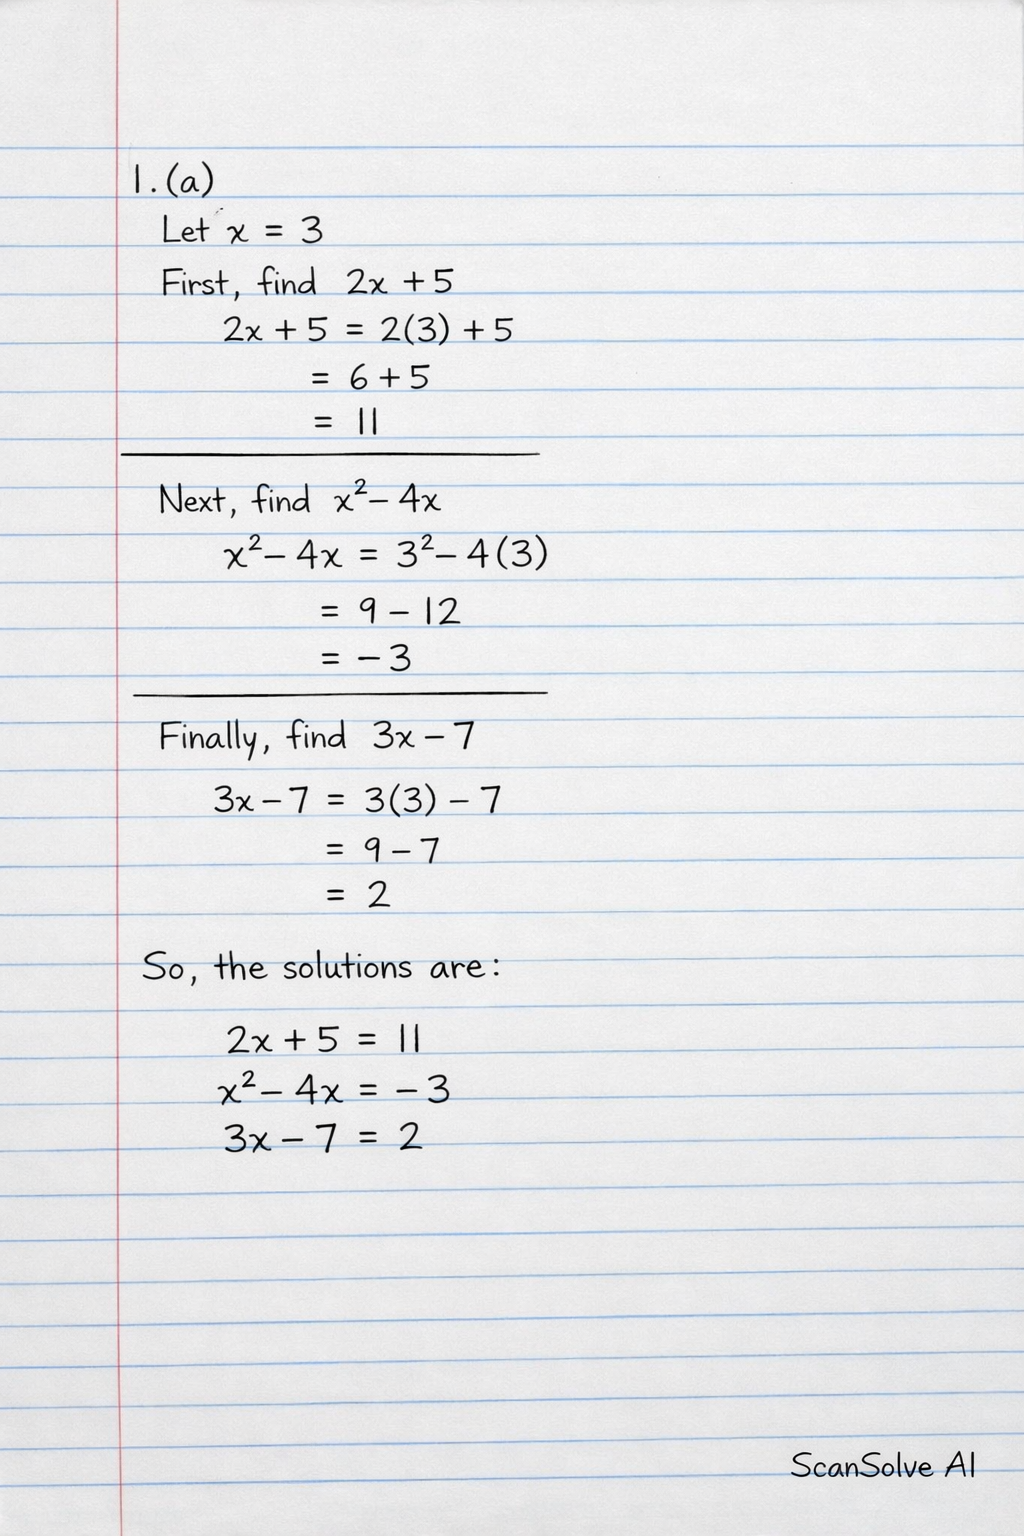 1. (a)
Let x = 3
First, find 2x + 5
2x + 5 = 2(3) + 5
= 6 + 5
= 11
Next, find x² – 4x
x² – 4x = 3² – 4(3)
= 9 – 12
= – 3
Finally, find 3x – 7
3x – 7 = 3(3) – 7
= 9 – 7
= 2
So, the solutions are:
2x + 5 = 11
x² – 4x = – 3
3x – 7 = 2
ScanSolve AI